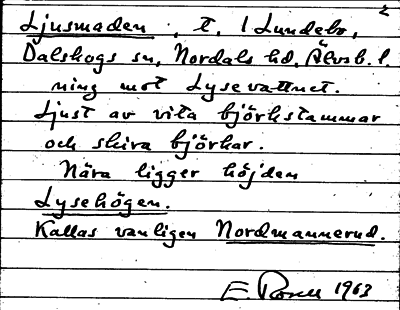 2
Ljusmaden, t. 1 Lundebo,
Dalskogs sn, Nordals hd, Älvsb. l.
ning mot Lysevattnet.
Ljust av vita björkstammar
och skira björkar.
Nära ligger höjden
Lysehögen.
Kallas vanligen Nordmannerud.
E. Rosell 1963